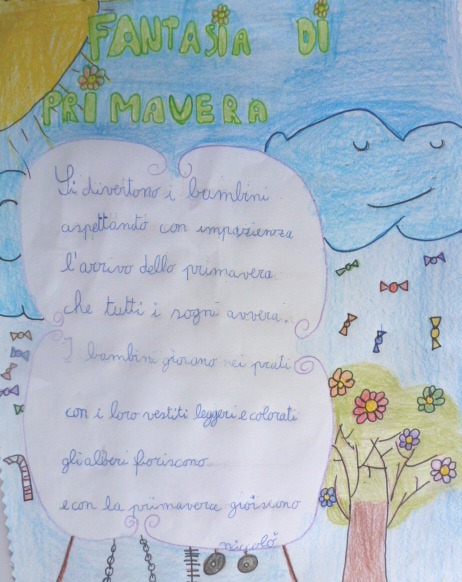 FANTASIA DI
PRIMAVERA
Si divertono i bambini
aspettando con impazienza
l'arrivo dello primavera
che tutti i sogni avvera.
I bambini giocano nei prati
con i loro vestiti leggeri e colorati
gli alberi fioriscono
e con la primavera gioiscono
nicolò